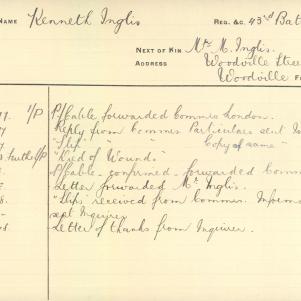 NAME Kenneth Inglis REG. &C. 43rd Bat
NEXT OF KIN Mr M. Inglis.
ADDRESS Woodville Stree
Woodville
P/Cable forwarded Commrs London.
Reply from Commrs Particulars sent
"Slip" " " Copy of same "
"Died of Wounds"
P/Cable confirmed forwarded
Letter forwarded Mr Inglis.
"Slip" received from Commrs. Informa
sent Inquirer
Letter of thanks from Inquirer.